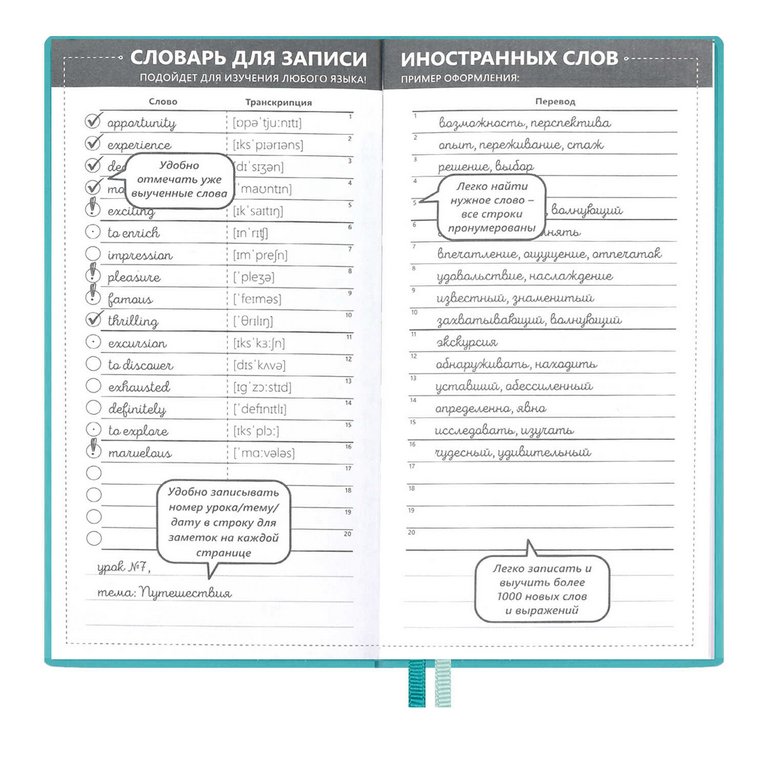 СЛОВАРЬ ДЛЯ ЗАПИСИ
ПОДОЙДЕТ ДЛЯ ИЗУЧЕНИЯ ЛЮБОГО ЯЗЫКА!
Слово Транскрипция
opportunity [ɒpəˈtjuːnɪtɪ] 1
experience [ɪksˈpɪərɪəns] 2
[dɪˈsɪʒən] 3
[ˈmaʊntɪn] 4
exciting [ɪkˈsaɪtɪŋ] 5
to enrich [ɪnˈrɪtʃ] 6
impression [ɪmˈpreʃn] 7
pleasure [ˈpleʒə] 8
famous [ˈfeɪməs] 9
thrilling [ˈθrɪlɪŋ] 10
excursion [ɪksˈkɜːʃn] 11
to discover [dɪsˈkʌvə] 12
exhausted [ɪgˈzɔːstɪd] 13
definitely [ˈdefɪnɪtlɪ] 14
to explore [ɪksˈplɔː] 15
marvelous [ˈmɑːvələs] 16
17
18
19
20
Удобно
отмечать уже
выученные слова
Удобно записывать
номер урока/тему/
дату в строку для
заметок на каждой
странице
урок №7,
тема: Путешествия
ИНОСТРАННЫХ СЛОВ
ПРИМЕР ОФОРМЛЕНИЯ:
Перевод
1 возможность, перспектива
2 опыт, переживание, стаж
3 решение, выбор
4
5 , волнующий
6
7 впечатление, ощущение, отпечаток
8 удовольствие, наслаждение
9 известный, знаменитый
10 захватывающий, волнующий
11 экскурсия
12 обнаруживать, находить
13 уставший, обессиленный
14 определенно, явно
15 исследовать, изучать
16 чудесный, удивительный
17
18
19
20
Легко найти
нужное слово –
все строки
пронумерованы
Легко записать и
выучить более
1000 новых слов
и выражений